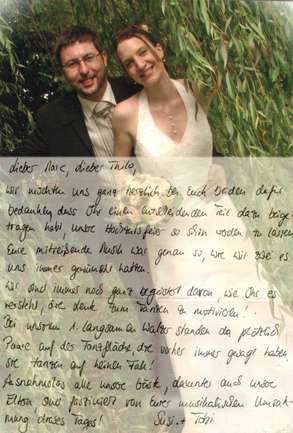 Lieber Marc, lieber Thilo,
wir möchten uns ganz herzlich bei Euch beiden dafür
bedanken, dass Ihr einen entscheidenden Teil dazu beige-
tragen habt, unsere Hochzeitsfeier so schön werden zu lassen.
Eure mitreißende Musik war genau so, wie wir sie es
uns immer gewünscht hatten.
Wir sind immer noch ganz begeistert davon, wie Ihr es
versteht, die Leute zum Tanzen zu motivieren!
Bei unserem 1. langsamen Walzer standen da plötzlich
Paare auf der Tanzfläche, die vorher immer gesagt haben,
sie tanzen auf keinen Fall!
Ausnahmslos alle unsere Gäste, darunter auch unsere
Eltern sind fasziniert von Eurer musikalischen Umrah-
mung dieses Tages! Susi +